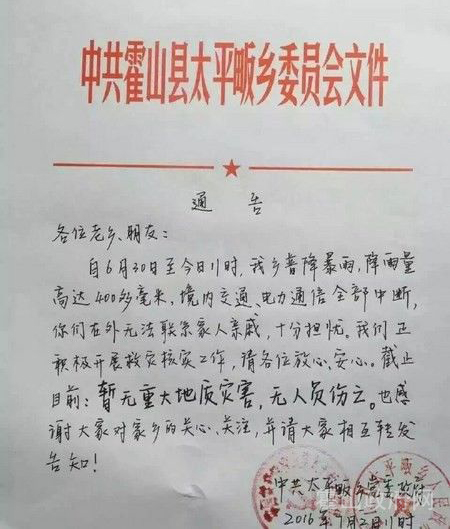 中共霍山县太平畈乡委员会文件
通 告
各位老乡、朋友：
自6月30日至今日11时，我乡普降暴雨，降雨量
高达400多毫米，境内交通、电力通信全部中断，
你们在外无法联系家人亲戚，十分担忧。我们正
积极开展救灾核实工作，请各位放心、安心。截止
目前：暂无重大地质灾害，无人员伤亡。也感
谢大家对家乡的关心、关注，并请大家相互转发
告知！
中共太平畈乡党委政府
2016年7月2日11时